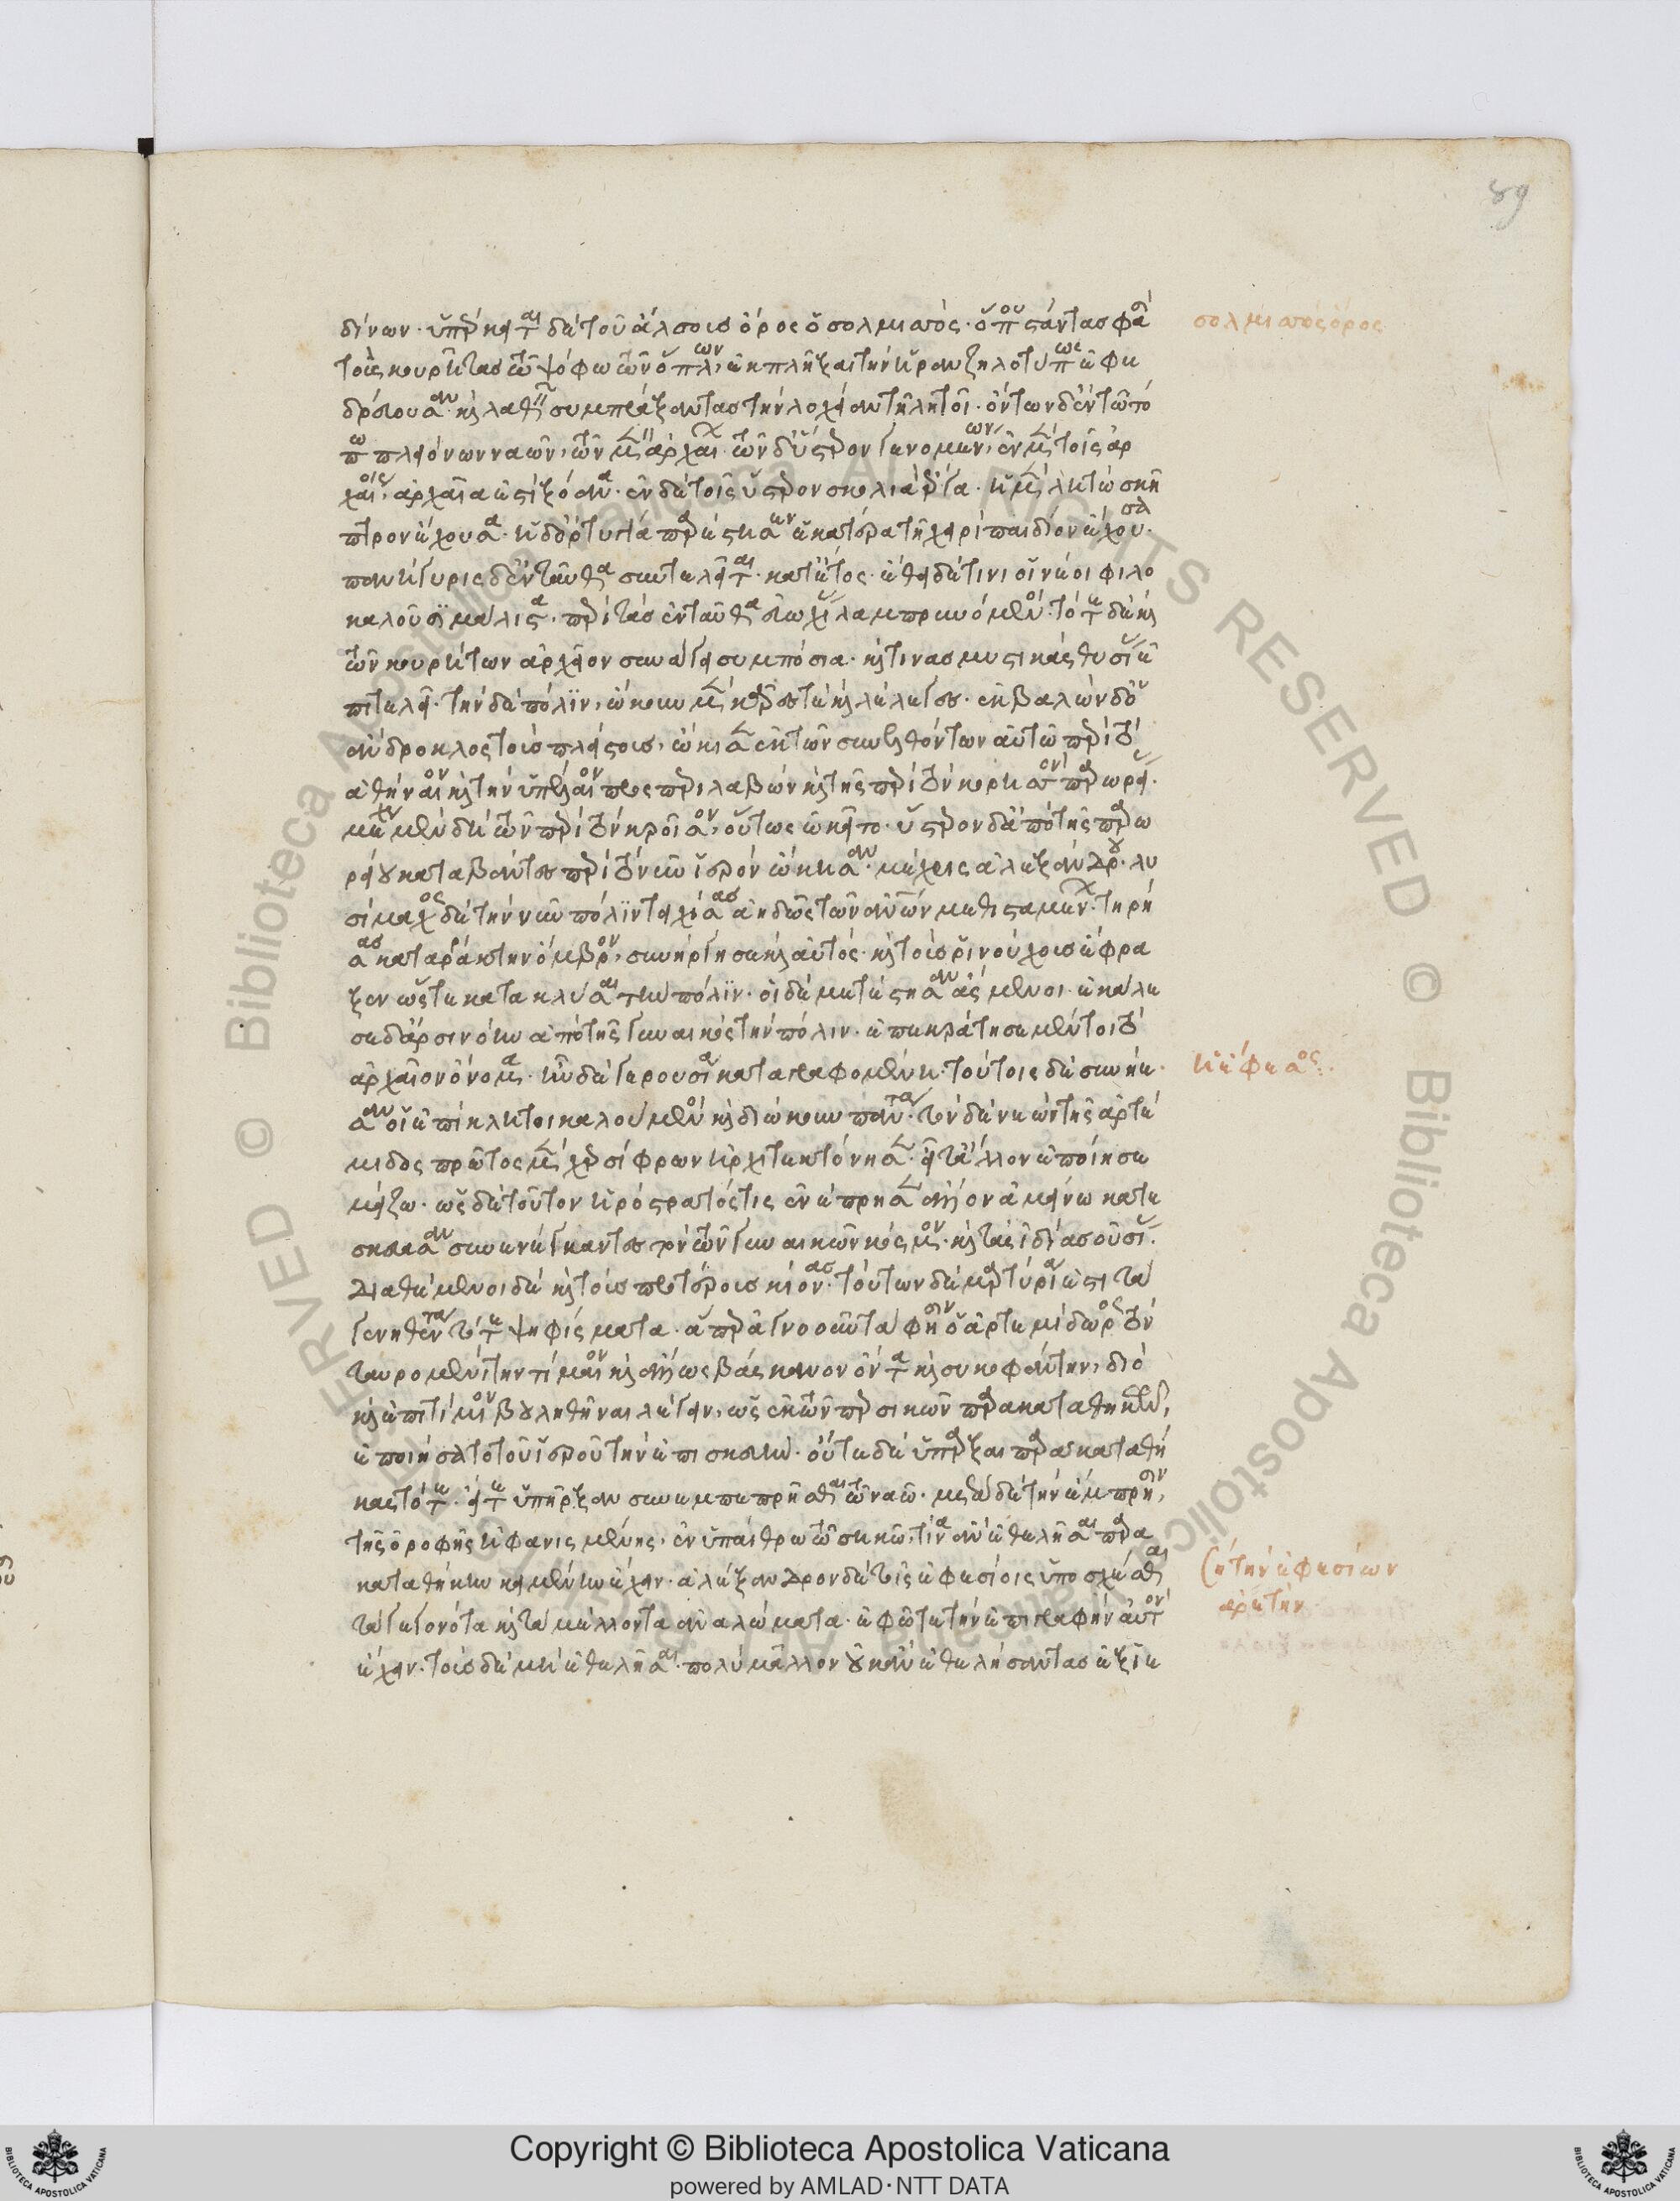 δίνων· ὑπέρκειται δὲ τοῦ ἄλσους ὄρος ὁ σολμισσός· ὅπου στάντας φασὶ
τοὺς κουρῆτας τῷ ψόφῳ τῶν ὅπλων, ἐκπλῆξαι τὴν ἥραν ζηλοτύπως ἐφε
δρεύουσαν· καὶ λαθεῖν συμπράξαντας τὴν λοχείαν τῇ λητοῖ· ὄντων δ' ἐν τῷ τό
πῳ πλειόνων ναῶν, τῶν μὲν ἀρχαίων· τῶν δ' ὕστερον γενομένων, ἐν μὲν τοῖς ἀρ
χαίοις, ἀρχαῖα ἐστὶ ξόανα· ἐν δὲ τοῖς ὕστερον σκολιὰ ἔργα· ἡ μὲν λητὼ σκῆ
πτρον ἔχουσα· ἡ δ' ὀρτυγία παρέστηκεν ἑκατέρα τῇ χειρὶ παιδίον ἔχουσα·
πανήγυρις δ' ἐνταῦθα συντελεῖται κατ' ἔτος· ἔθει δέ τινι οἱ νέοι φιλο
καλοῦσι μάλιστα· περὶ τὰς ἐνταῦθα εὐωχίας λαμπρυνόμενοι· τότε δὲ καὶ
τῶν κουρήτων ἀρχεῖον συνάγει συμπόσια· καί τινας μυστικὰς θυσίας ἐ
πιτελεῖ· τὴν δὲ πόλιν, ᾤκουν μὲν κᾶρές τε καὶ λέλεγες· ἐκβαλὼν δ' ὁ
ἄνδροκλος τοὺς πλείστους, ᾤκισεν ἐκ τῶν συνελθόντων αὐτῷ περὶ τὸ
ἀθήναιον καὶ τὴν ὑπέλαιον προσπεριλαβὼν καὶ τῆς περὶ τὸν κορησσὸν παρωρείας·
μέχρι μὲν δὴ τῶν περὶ τὸν κροῖσον, οὕτως ᾠκεῖτο· ὕστερον δ' ἀπὸ τῆς παρω
ρείου καταβάντες περὶ τὸ νῦν ἱερὸν ᾤκησαν· μέχρις ἀλεξάνδρου· λυ
σίμαχος δὲ τὴν νῦν πόλιν τειχίσας ἀηδῶς τῶν ἀνθρώπων μεθισταμένων· τηρή
σας καταράκτην ὄμβρον, συνήργησε καὶ αὐτός· καὶ τοὺς ῥινούχους ἐνέφρα
ξεν ὥστε κατακλύσαι τὴν πόλιν· οἱ δὲ μετέστησαν ἄσμενοι· ἐκάλε
σε δ' ἀρσινόην ἀπὸ τῆς γυναικὸς τὴν πόλιν· ἐπεκράτησε μέντοι τὸ
ἀρχαῖον ὄνομα· ἦν δὲ γερουσία καταγραφομένη· τούτοις δὲ συνῄε
σαν οἱ ἐπίκλητοι καλούμενοι καὶ διῴκουν πάντα· τὸν δὲ νεὼν τῆς ἀρτέ
μιδος πρῶτος μὲν χερσίφρων ἠρχιτεκτόνησεν· εἶτ' ἄλλον ἐποίησε
μείζω· ὡς δὲ τοῦτον ἡρόστρατός τις ἐνέπρησεν ἄλλον ἀμείνω κατε
σκεύασαν συνενέγκαντες τὸν τῶν γυναικῶν κόσμον· καὶ τὰς ἰδίας οὐσίας·
διαθέμενοι δὲ καὶ τοὺς προτέρους κίονας· τούτων δὲ μαρτύριά ἐστι τὰ
γενηθέντα τότε ψηφίσματα· ἅπερ ἀγνοοῦντά φησιν ὁ ἀρτεμίδωρος τὸν
ταυρομενίτην τίμαιον καὶ ἄλλως βάσκανον ὄντα καὶ συκοφάντην, διὸ
καὶ ἐπιτίμαιον βουληθῆναι λέγειν, ὡς ἐκ τῶν περσικῶν παρακαταθηκῶν,
ἐποιήσαντο τοῦ ἱεροῦ τὴν ἐπισκευήν· οὔτε δὲ ὑπάρξαι παρακαταθή
κας τότε· εἴτε ὑπῆρξαν συνεμπεπρῆσθαι τῷ ναῷ· μετὰ δὲ τὴν ἔμπρησιν,
τῆς ὀροφῆς ἠφανισμένης, ἐν ὑπαίθρῳ τῷ σηκῷ, τίνα ἂν ἐθελῆσαι παρα
καταθήκην κειμένην ἔχειν· ἀλέξανδρον δὲ τοῖς ἐφεσίοις ὑποσχέσθαι
τὰ γεγονότα καὶ τὰ μέλλοντα ἀναλώματα· ἐφ' ᾧ τε τὴν ἐπιγραφὴν αὐτὸν
ἔχειν· τοὺς δὲ μὴ ἐθελῆσαι· πολὺ μᾶλλον οὐκ ἂν ἐθελήσαντας ἐξ ἱε
σολμισσὸς ὄρος
ἡ ἔφεσος
τὴν ἐφεσίων
ἀρετήν
89
Copyright © Biblioteca Apostolica Vaticana
powered by AMLAD·NTT DATA